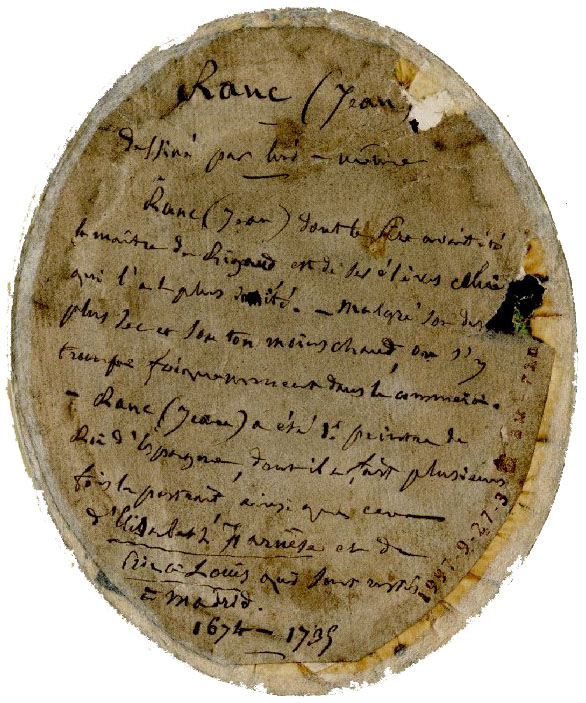 Ranc (Jean)
dessiné par lui-même
Ranc (Jean) dont le père avait été
le maître de Rigaud est de ses élèves celui
qui l'a le plus imité. - malgré son dessin
plus sec et son ton moins chaud on s'y
trompe fréquemment dans le commerce.
- Ranc (Jean) a été 1er peintre du
Roi d'Espagne, dont il a fait plusieurs
fois le portrait, ainsi que ceux
d'Elisabeth Farnèse et de
Louis qui sont restés
à Madrid.
1674 - 1735
1997.9.27.3